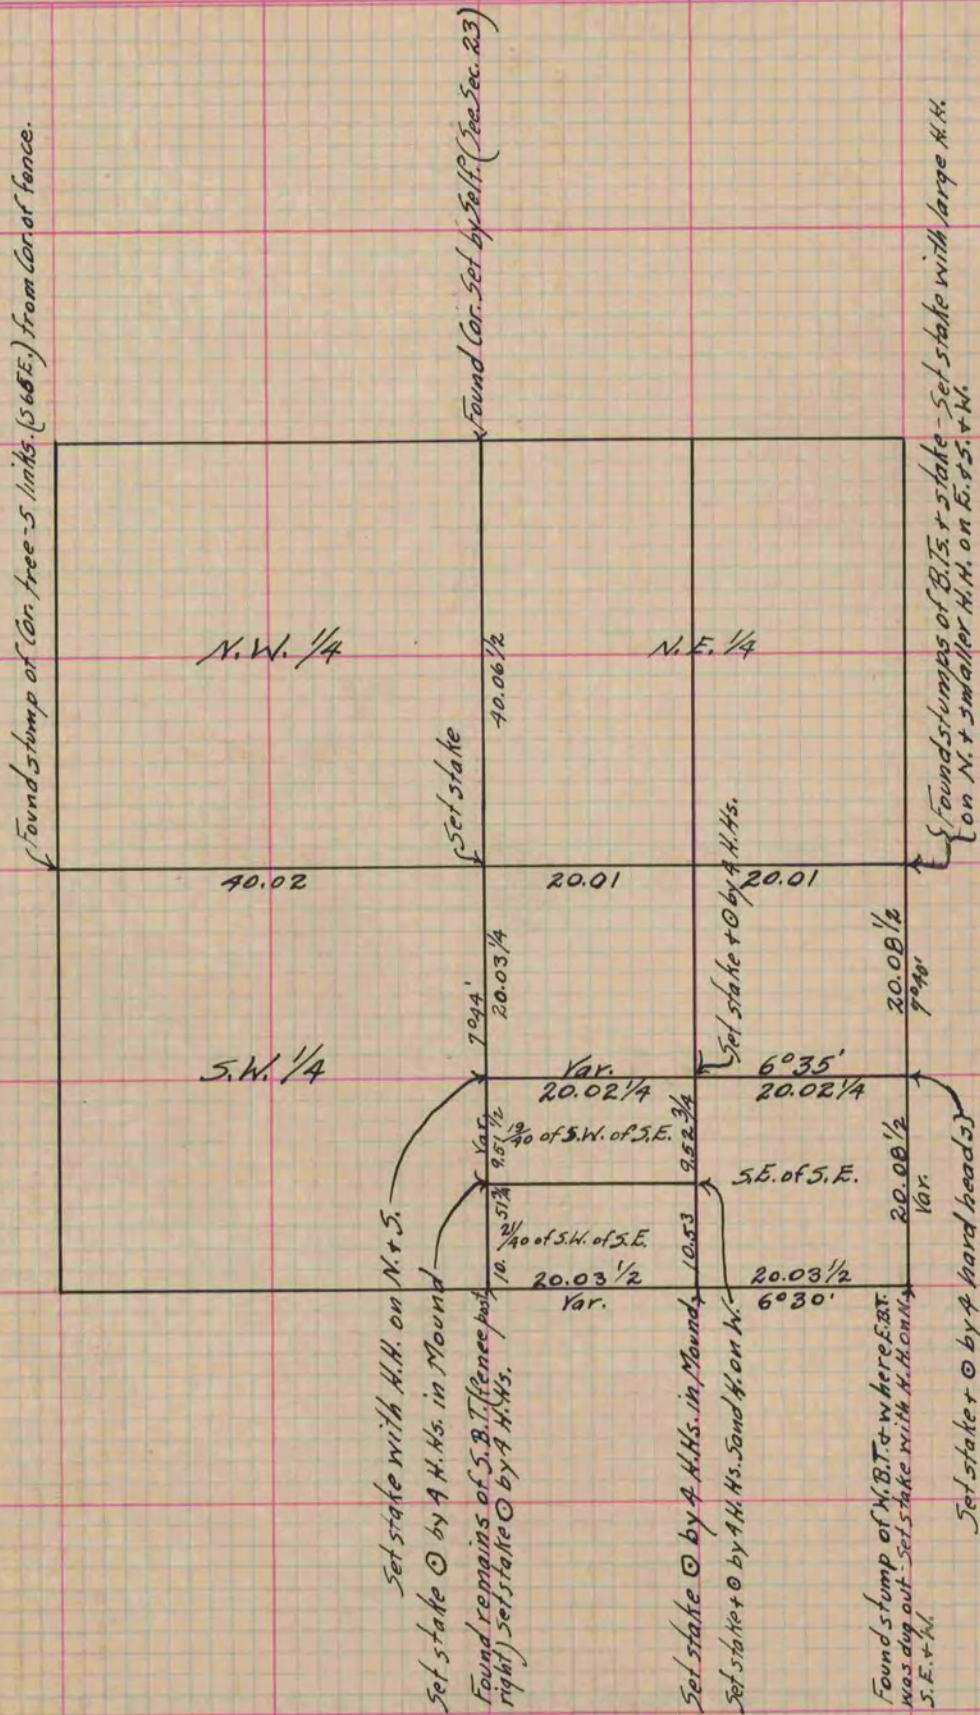 Found stump of Cor. tree - 5 links. (S65E.) from Cor. of fence.
Found Cor. Set by Self. (See Sec. 23)
N.W. 1/4
40.06 1/2
N.E. 1/4
Set stake
{Found stumps of B.Ts. + stake - Set stake with large H.H.
on N. + smaller H.H. on E. + S. + W.
40.02
20.01
20.01
S.W. 1/4
7°44'
20.03 1/4
Set stake + ⊙ by 4 H.Hs.
20.08 1/2
Var.
20.02 1/4
6°35'
20.02 1/4
Var.
9.51 1/2
19/40 of S.W. of S.E.
9.52 3/4
S.E. of S.E.
20.08 1/2
Var.
21/40 of S.W. of S.E.
10.53
20.03 1/2
Var.
20.03 1/2
6°30'
Set stake with H.H. on N. + S.
Set stake ⊙ by 4 H.Hs. in Mound
Found remains of S.B.T. (fence post
right) Set stake ⊙ by 4 H.Hs.
Set stake ⊙ by 4 H.Hs. in Mound
Set stake + ⊙ by 4 H.Hs. Sand H. on W.
Found stump of W.B.T. + where E.B.T.
was dug out - Set stake with H.H. on N.
S. E. + W.
Set stake + ⊙ by 4 hard head(s)